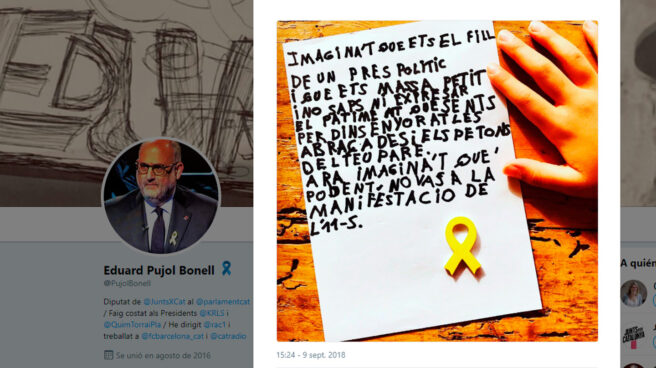 IMAGINA'T QUE ETS EL FILL
DE UN PRES POLITIC
I QUE ETS MASSA PETIT
I NO SAPS NI EXPRESAR
EL PATIMENT QUE SENTS
PER DINS ENYORAT LES
ABRAÇADES I ELS PETONS
DEL TEU PARE.
ARA IMAGINA'T QUE,
PODENT, NO VAS A LA
MANIFESTACIO DE
L'11-S.
15:24 - 9 sept. 2018
Eduard Pujol Bonell
@PujolBonell
Diputat de @JuntsXCat al @parlamentcat
/ Faig costat als Presidents @KRLS i
@QuimTorraiPla / He dirigit @rac1 i
treballat a @fcbarcelona_cat i @catradio
Se unió en agosto de 2016
A quién
JUNTS
CATALUNYA